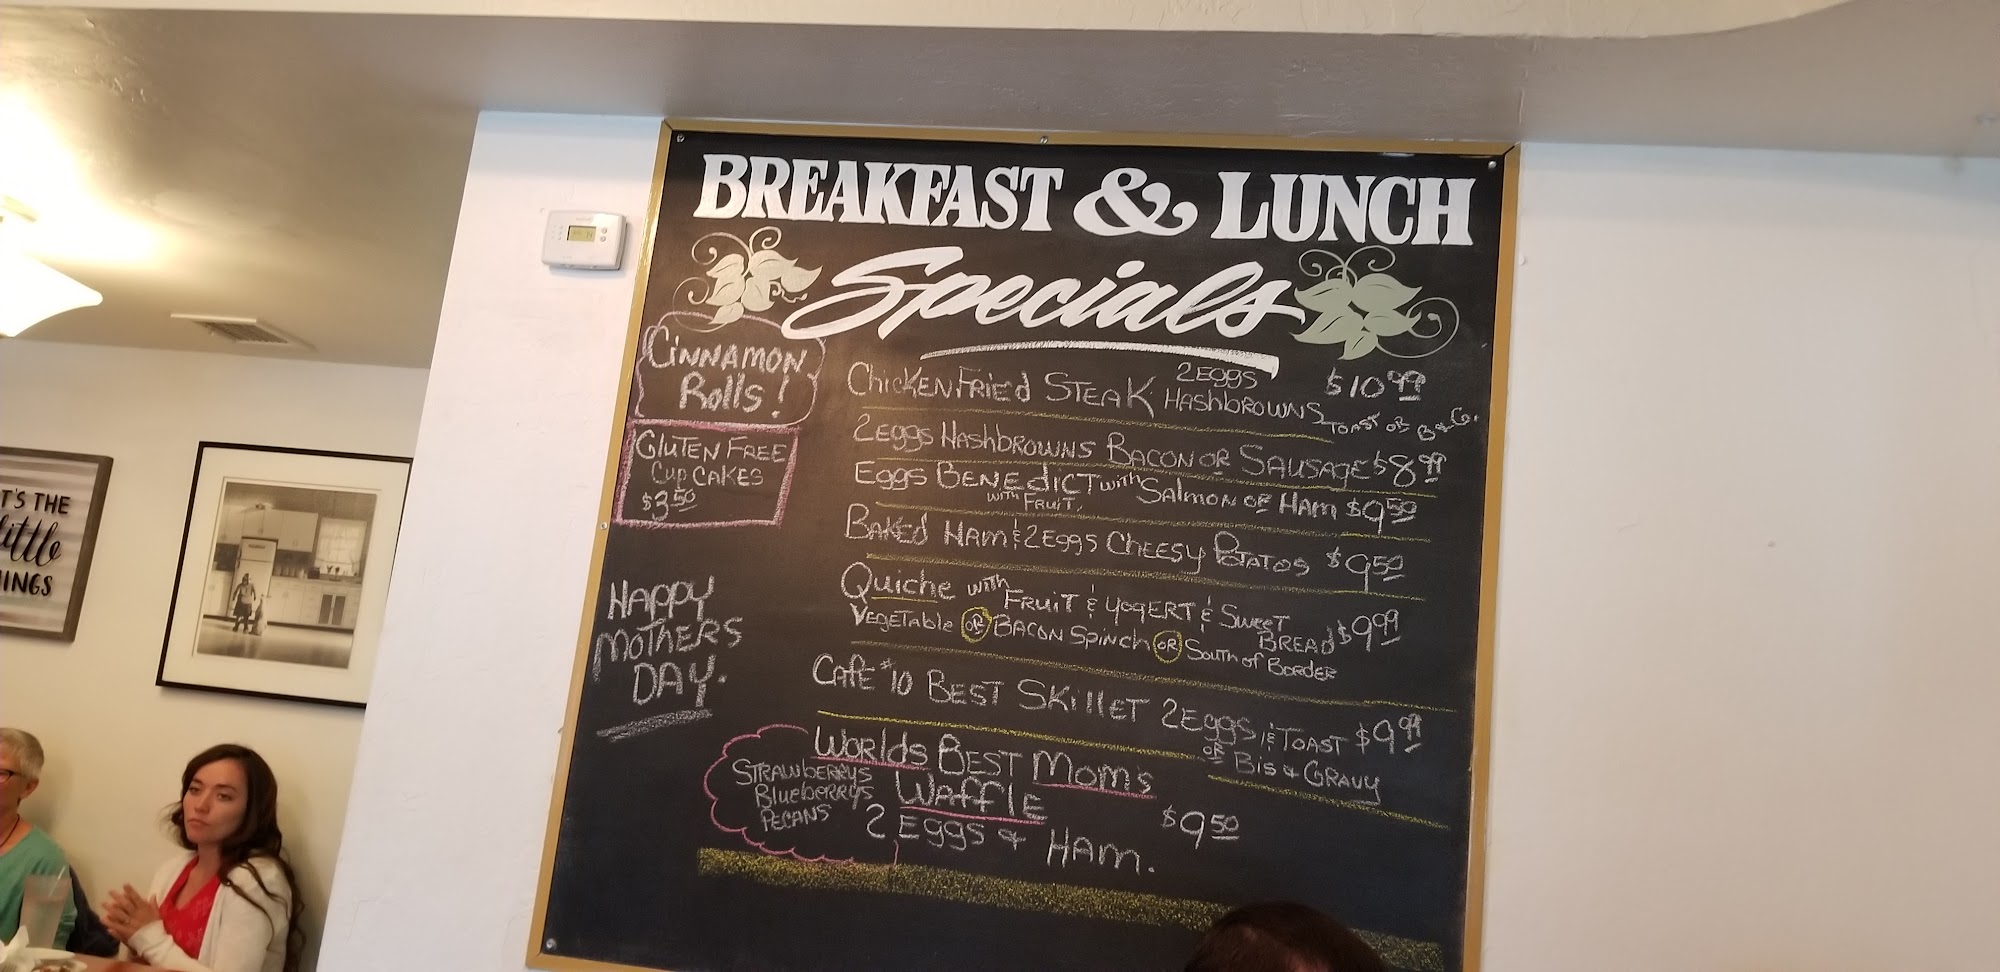 BREAKFAST & LUNCH
Specials
CINNAMON
Rolls!
GLUTEN FREE
Cup CAKES
$3.50
HAPPY
MOTHERS
DAY.
ChicKEN FRiEd STEAK 2 EGGS HASHbROWNS TOAST OR B & G. $10.99
2 Eggs HASHbROWNS BACON OR SAUSAGE $8.99
Eggs BENEdiCT with Salmon OR HAm $9.50
with FRUiT,
BAKEd HAM & 2 Eggs CHEESY POTATOS $9.50
Quiche with FRUiT & YOgERT & SwEET BREAD $9.99
VEgETAble OR BACON SpiNch OR SOUTH of BORDER
CAfE #10 BEST SKillET 2 Eggs & TOAST $9.99
OR Bis & GRAVY
WORlds BEST MOM's
WAfflE
2 EGGS & HAM. $9.50
STRAWbERRYS
BluEbERRYS
PECANS
T'S THE
little
INGS